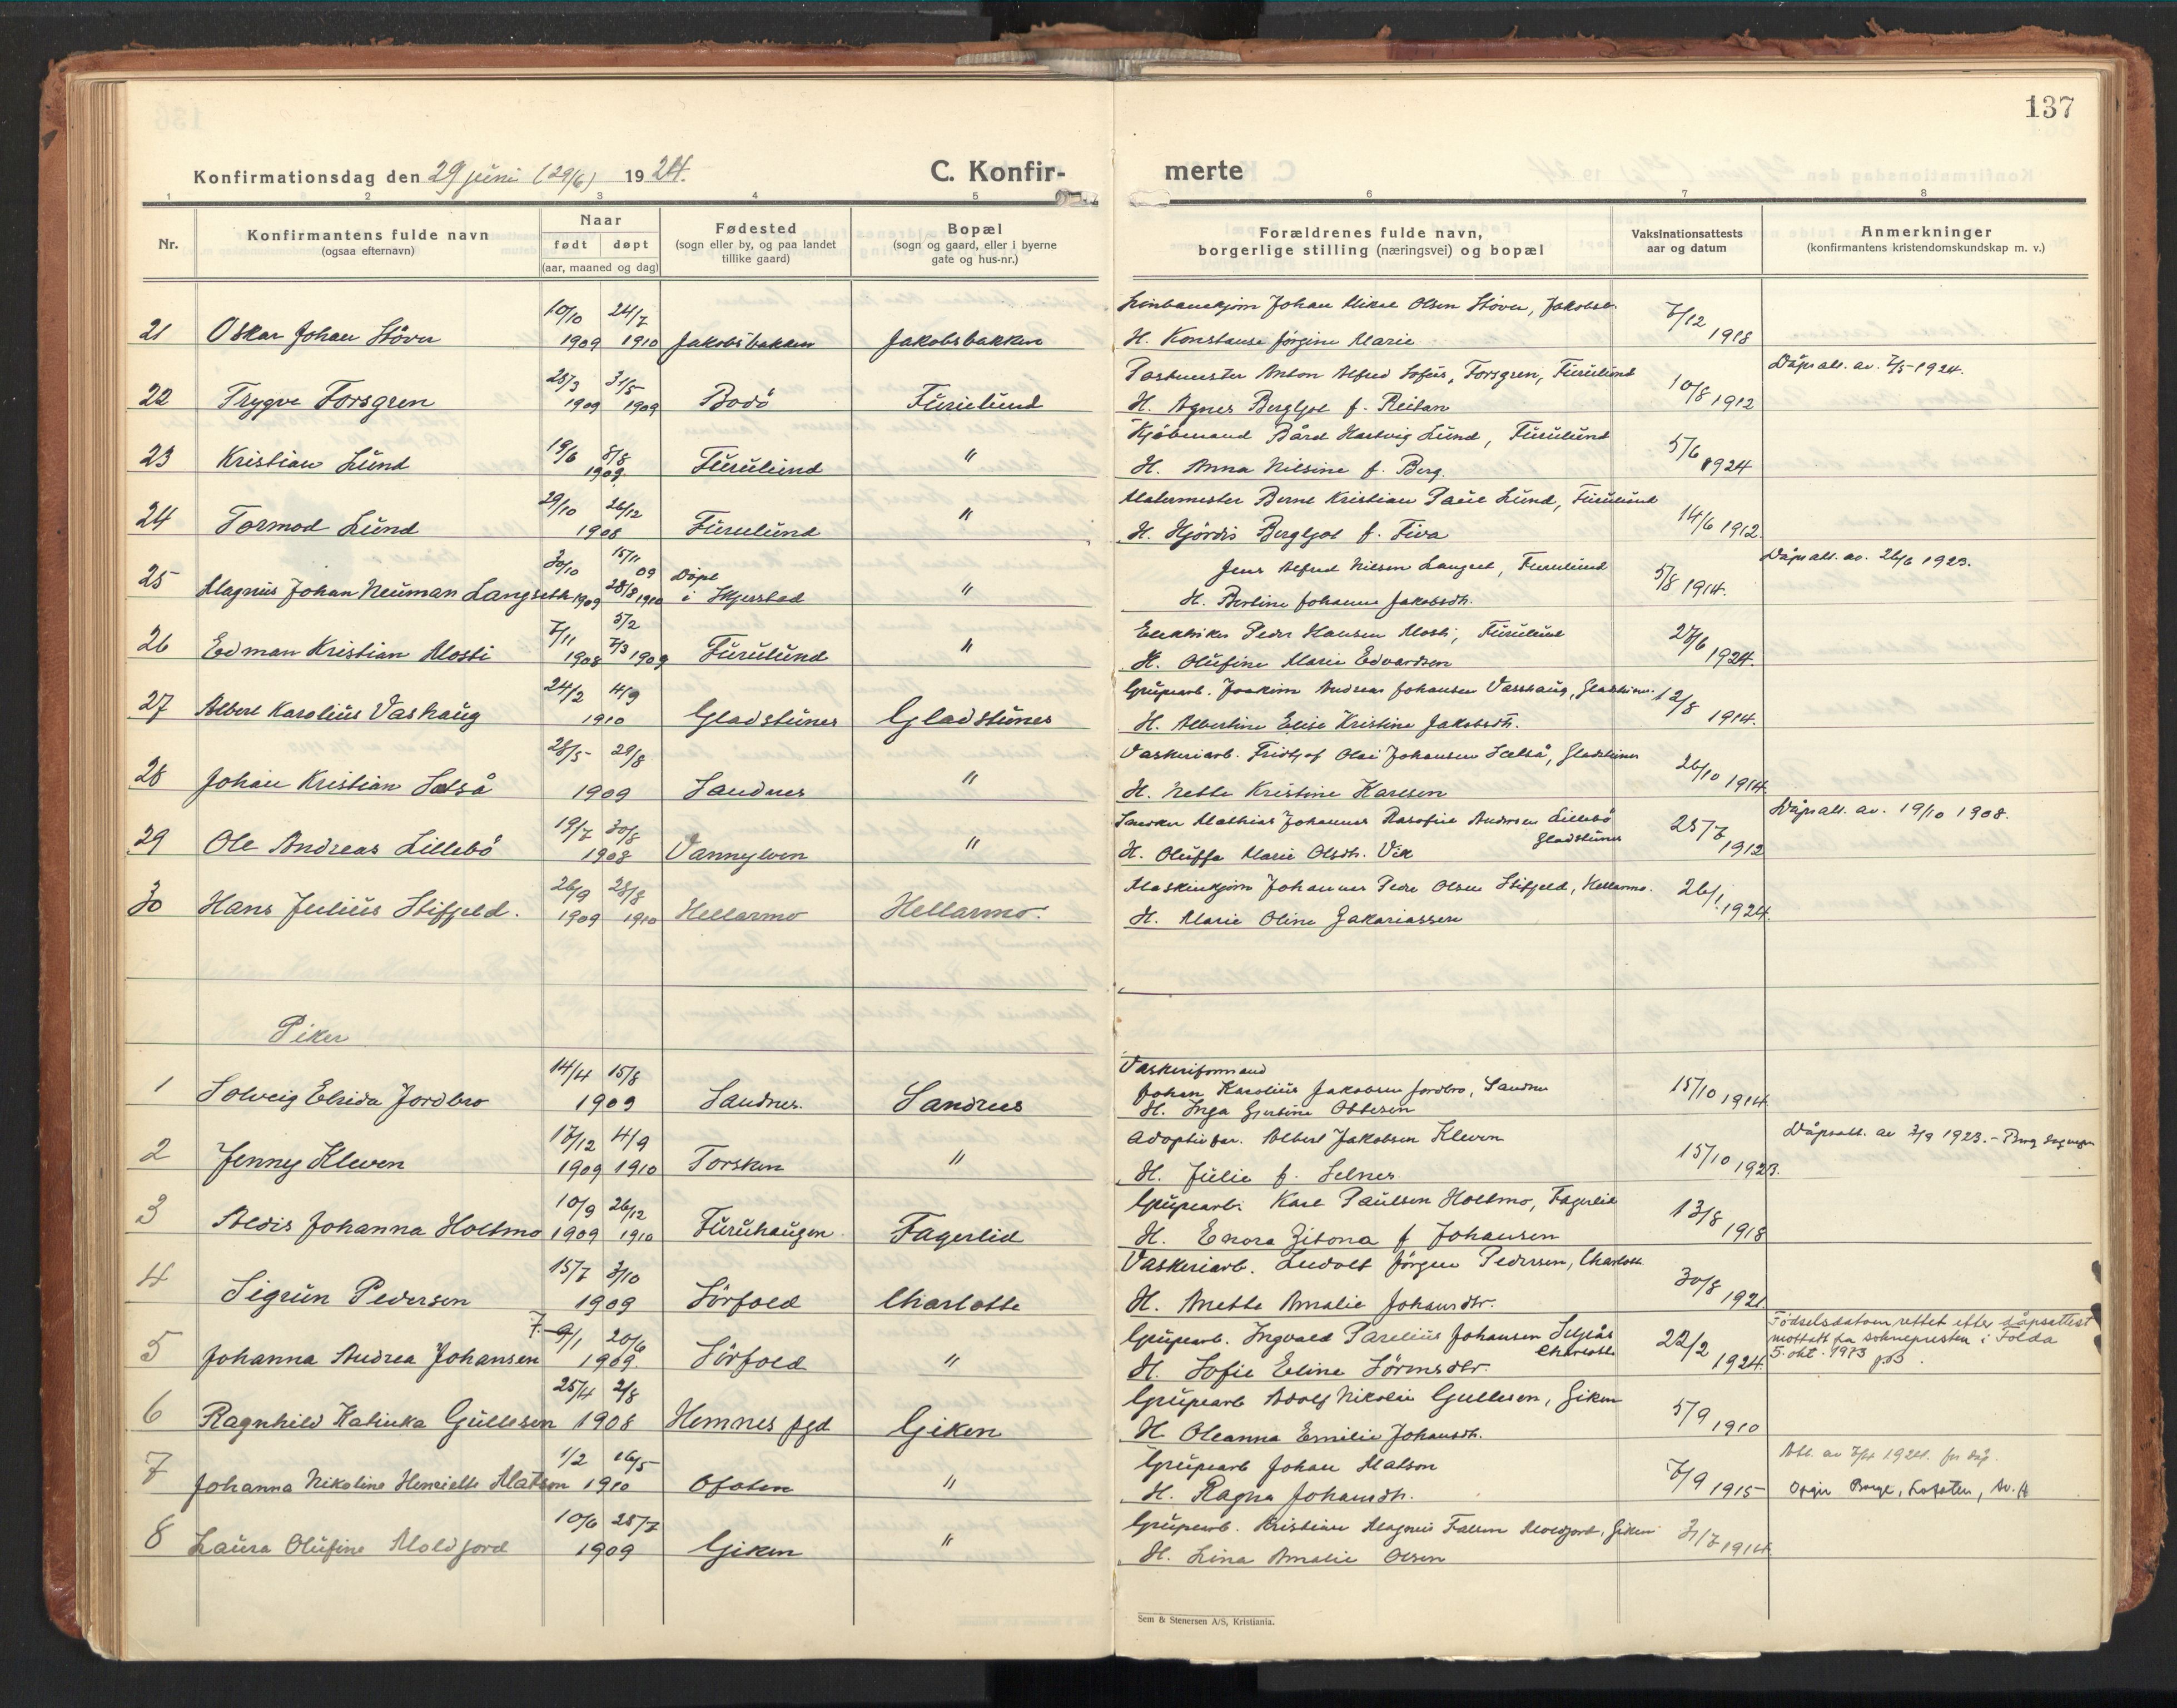 137
Konfirmationsdag den 29 juni (29/6) 1924.
C. Konfir-
merte
1 2 3 4 5 6 7 8
Nr.
Konfirmantens fulde navn
(ogsaa efternavn)
Naar
født døpt
(aar, maaned og dag)
Fødested
(sogn eller by, og paa landet
tillike gaard)
Bopæl
(sogn og gaard, eller i byerne
gate og hus-nr.)
Forældrenes fulde navn,
borgerlige stilling (næringsvei) og bopæl
Vaksinationsattests
aar og datum
Anmerkninger
(konfirmantens kristendomskundskap m. v.)
10/10 24/7 Johan Mikal Olsen Støver, Jakobsb. 7/12
21 Oskar Johan Støver 1909 1910 Jakobsbakken Jakobsbakken H. Konstanse Jørgine Marie 1918
25/3 31/5 Postmester Anton Alfred Sofus Forsgren, Furulund 10/8 Dåpsatt. av. 7/5-1924.
22 Trygve Forsgren 1909 1909 Bodö Furulund H. Agnes Bergljot f. Reitan 1912
19/6 8/8 Kjöbmand Bård Hartvig Lund, Furulund 5/6
23 Kristian Lund 1909 Furulund " H. Anna Nilsine f. Berg. 1924
29/10 26/12 Malermester Bernt Kristian Paul Lund, Furulund 14/6
24 Tormod Lund 1908 Furulund " H. Hjördis Bergljot f. Fiva 1912.
30/10 15/11 09 Döpt Jens Alfred Nilsen Langset, Furulund 5/8 Dåpsatt. av. 26/6 1923.
25 Magnus Johan Neuman Langseth 1909 28/8 1910 i Skjerstad " H. Bertine Johanna Jakobsdtr. 1914.
7/11 5/2 Elektriker Peder Hansen Mosti, Furulund 27/6
26 Edman Kristian Mosti 1908 7/3 1909 Furulund " H. Olufine Marie Edvardsen 1924.
24/2 4/9 Grupearb. Joakim Andreas Johansen Vasshaug, 12/8
27 Albert Karolius Vashaug 1910 Gladstunes Gladstunes H. Albertine Elise Kristine Jakobsdtr. 1914.
28/5 29/8 Vaskeriarb. Fridtjof Olai Johansen Setså, Gladstunes 26/10
28 Johan Kristian Setså 1909 Sandnes " H. Nette Kristine Karlsen 1914.
19/7 30/8 Mathias Johannes Andersen Lillebö 25/7 Dåpsatt. av. 19/10 1908.
Gladstunes
29 Ole Andreas Lillebö 1908 Vannylven " H. Oluffa Marie Olsdtr. Vik 1912
26/9 28/8 Maskinkjörer Johannes Peder Olsen Stifjeld, Hellarmo. 26/1
30 Hans Julius Stifjeld. 1909 1910 Hellarmo Hellarmo. H. Marie Oline Zakariassen 1924.
Piker
14/4 15/8 Vaskeriformand
Johan Karolius Jakobsen Jordbro, Sandnes 15/10
1 Solveig Elvida Jordbro 1909 Sandnes. Sandnes H. Inga Gjertine Ottesen 1914
17/12 4/9 Adoptivfar. Albert Jakobsen Kleven 15/10 Dåpsatt. av 7/9 1923. -
2 Jenny Kleven 1909 1910 Torsken " H. Julie f. Selnes. 1923.
10/9 26/12 Grupearb. Karl Paulsen Holtmo, Fagerlid 13/8
3 Aldis Johanna Holtmo 1909 1910 Furuhaugen Fagerlid H. Enora Zitona f Johansen 1918
15/7 3/10 Vaskeriarb. Ludolt Jörgen Pedersen, Charlott. 30/8
4 Sigrun Pedersen 1909 Sörfold Charlotte H. Anette Amalie Johansdtr. 1921
7. 9/1 20/6 Grupearb. Ingvald Parelius Johansen Seljås 22/2 Födselsdatoen rettet etter dåpsattest
Charlotte mottatt fra sokneprestn i Folda
5 Johanna Andrea Johansen 1909. Sörfold " H. Sofie Eline Sörensdtr. 1924. 5. okt. 1973
25/4 2/8 Grupearb Adolf Nikolai Gullesen, Giken 5/9
6 Ragnhild Katinka Gullesen 1908 Hemnes pgd Giken H Oleanna Emilie Johansdtr. 1910
1/2 16/5 Grupearb Johan Matson 7/9 Att. av 1924.
7 Johanna Nikoline Henriette Matson 1910 Ofoten " H. Ragna Johansdtr. 1915 Lofoten,
10/6 25/7 Grupearb. Kristian Magnus Moldjord, Giken 31/7
8 Laura Olufine Moldjord 1909 Giken " H. Lina Amalie Olsen 1914
Sem & Stenersen A/S, Kristiania.